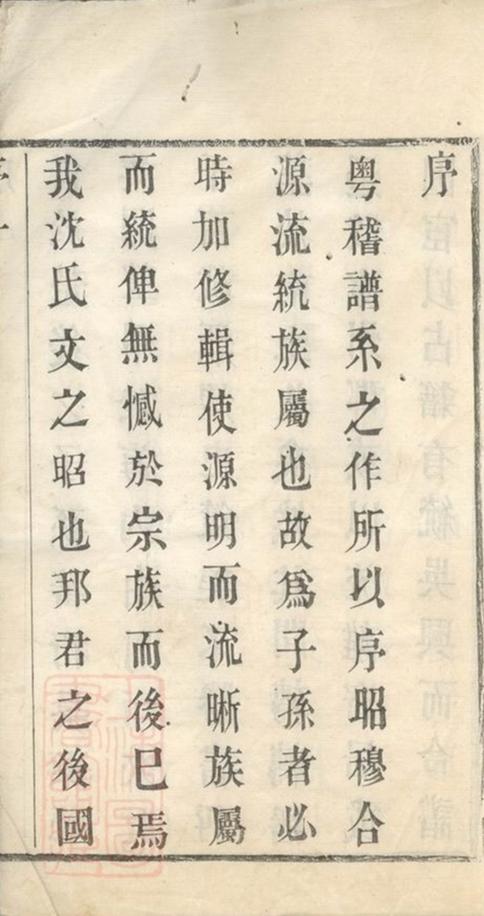 序
粤稽譜系之作所以序昭穆合
源流統族屬也故爲子孫者必
時加修輯使源明而流晰族屬
而統俾無憾於宗族而後已焉
我沈氏文之昭也邦君之後國
序 一